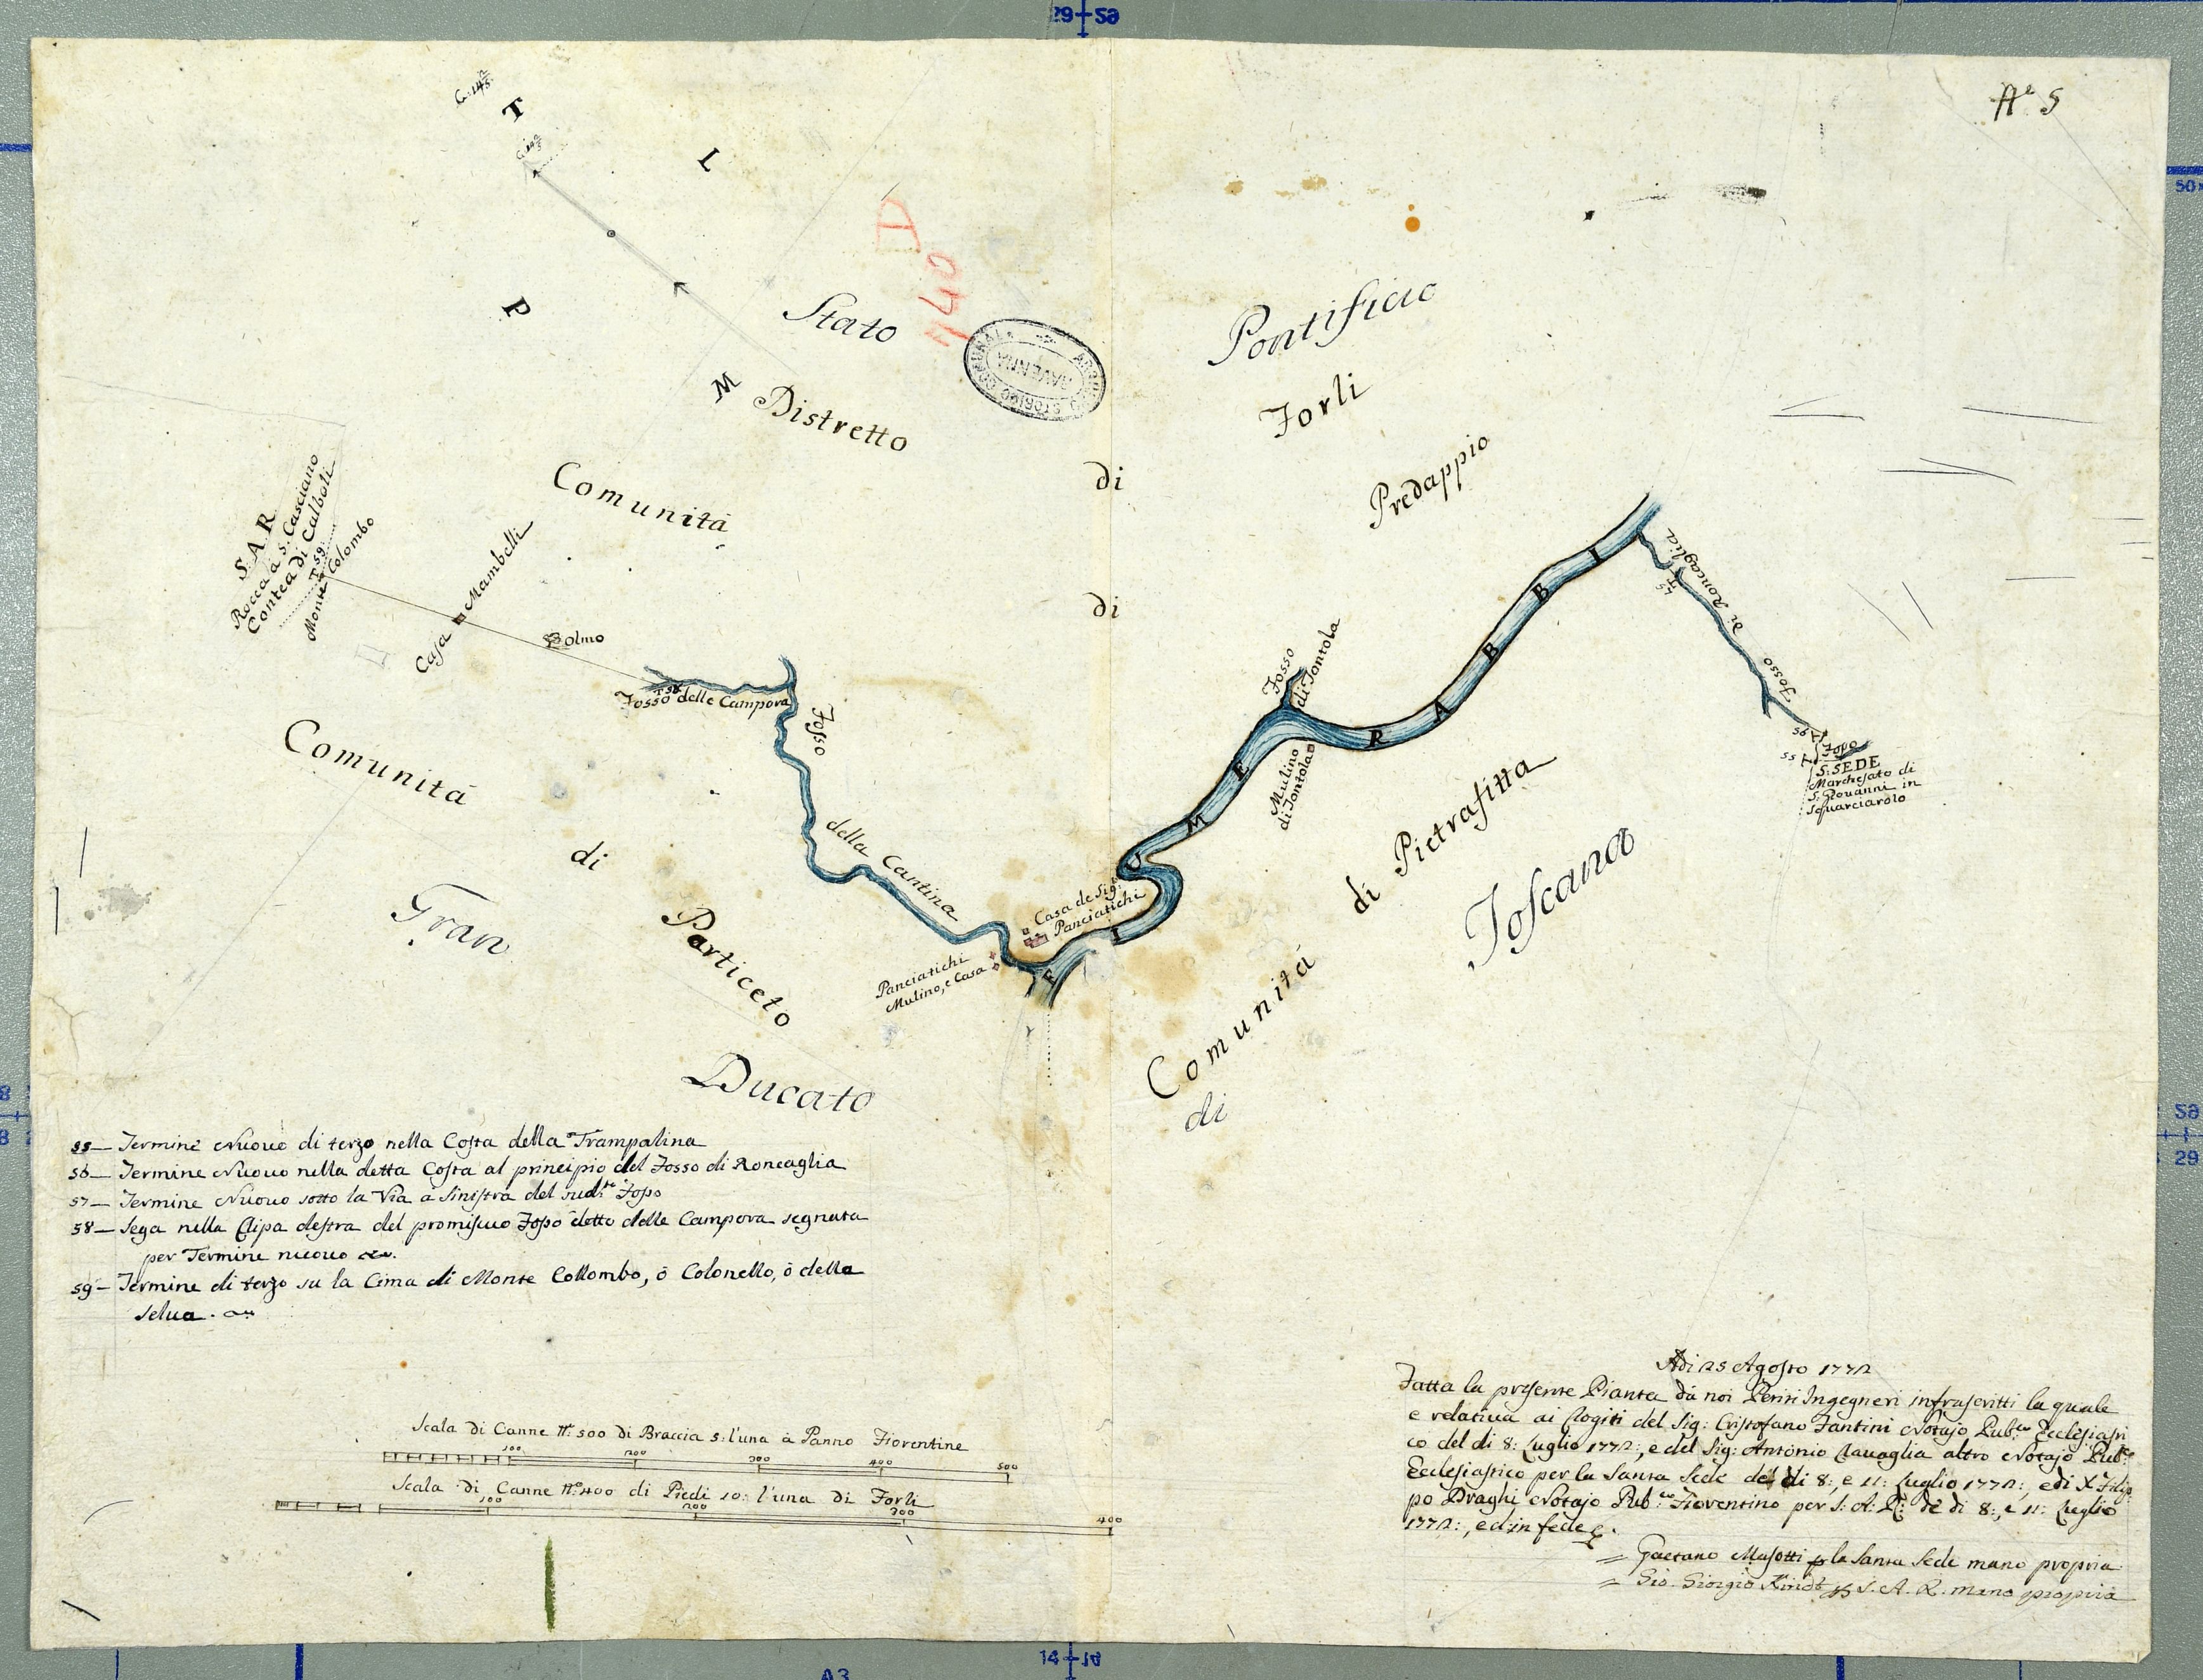 Nº 5
T
L
P
M
Stato
Pontificio
Distretto
di
Forli
Comunità
di
Predappio
V
740
ARCHIVIO STORICO COMUNALE
RAVENNA
S. A. R.
Rocca à S. Casciano
Contea di Calboli
T 59.
Monte Colombo
Casa Mambelli
Bolmo
T 58
Fosso delle Campova
Fosso
della Cantina
Casa de Sig:ri
Panciatichi
Panciatichi
Mulino, e Casa
FIUME RABBI
Fosso
di Fontola
Mulino
di Fontola
57 T
Fosso di Roncaglia
56 T
55 T
Fosso
S: SEDE
Marchesato di
S. Giovanni in
Squarciarolo
Comunità
di
Particeto
Comunità
di Pietrafitta
Gran
Ducato
di
Toscana
55— Termine Nuovo di terzo nella Costa della Trampalina
56— Termine Nuovo nella detta Costa al principio del Fosso di Roncaglia
57— Termine Nuovo sotto la Via à sinistra del sud:to Fosso
58— Sega nella Ripa destra del promiscuo Fosso detto delle Campova segnata
per Termine nuovo
59— Termine di terzo su la Cima di Monte Collombo, ó Colonello, ó della
Selva.
Scala di Canne Nº: 500 di Braccia 5: l'una à Panno Fiorentine
100 200 300 400 500
Scala di Canne Nº: 400 di Piedi 10: l'una di Forli
100 200 300 400
Adi 25 Agosto 1772
Fatta la presente Pianta da noi Periti Ingegneri infrascritti la quale
e relativa ai Rogiti del Sig: Cristofano Fantini Notajo Pub:co Ecclesiasti
co del di 8: Luglio 1772:, e del Sig: Antonio Ravaglia altro Notajo Pub:co
Ecclesiastico per la Santa Sede del di 8:, e 11: Luglio 1772:, e di Filip
po Draghi Notajo Pub:co Fiorentino per S: A: R: de di 8:, e 11: Luglio
1772:, ed in fede
= Gaetano Masotti p la Santa Sede mano propria
= Gio. Giorgio S. A. R. mano propria